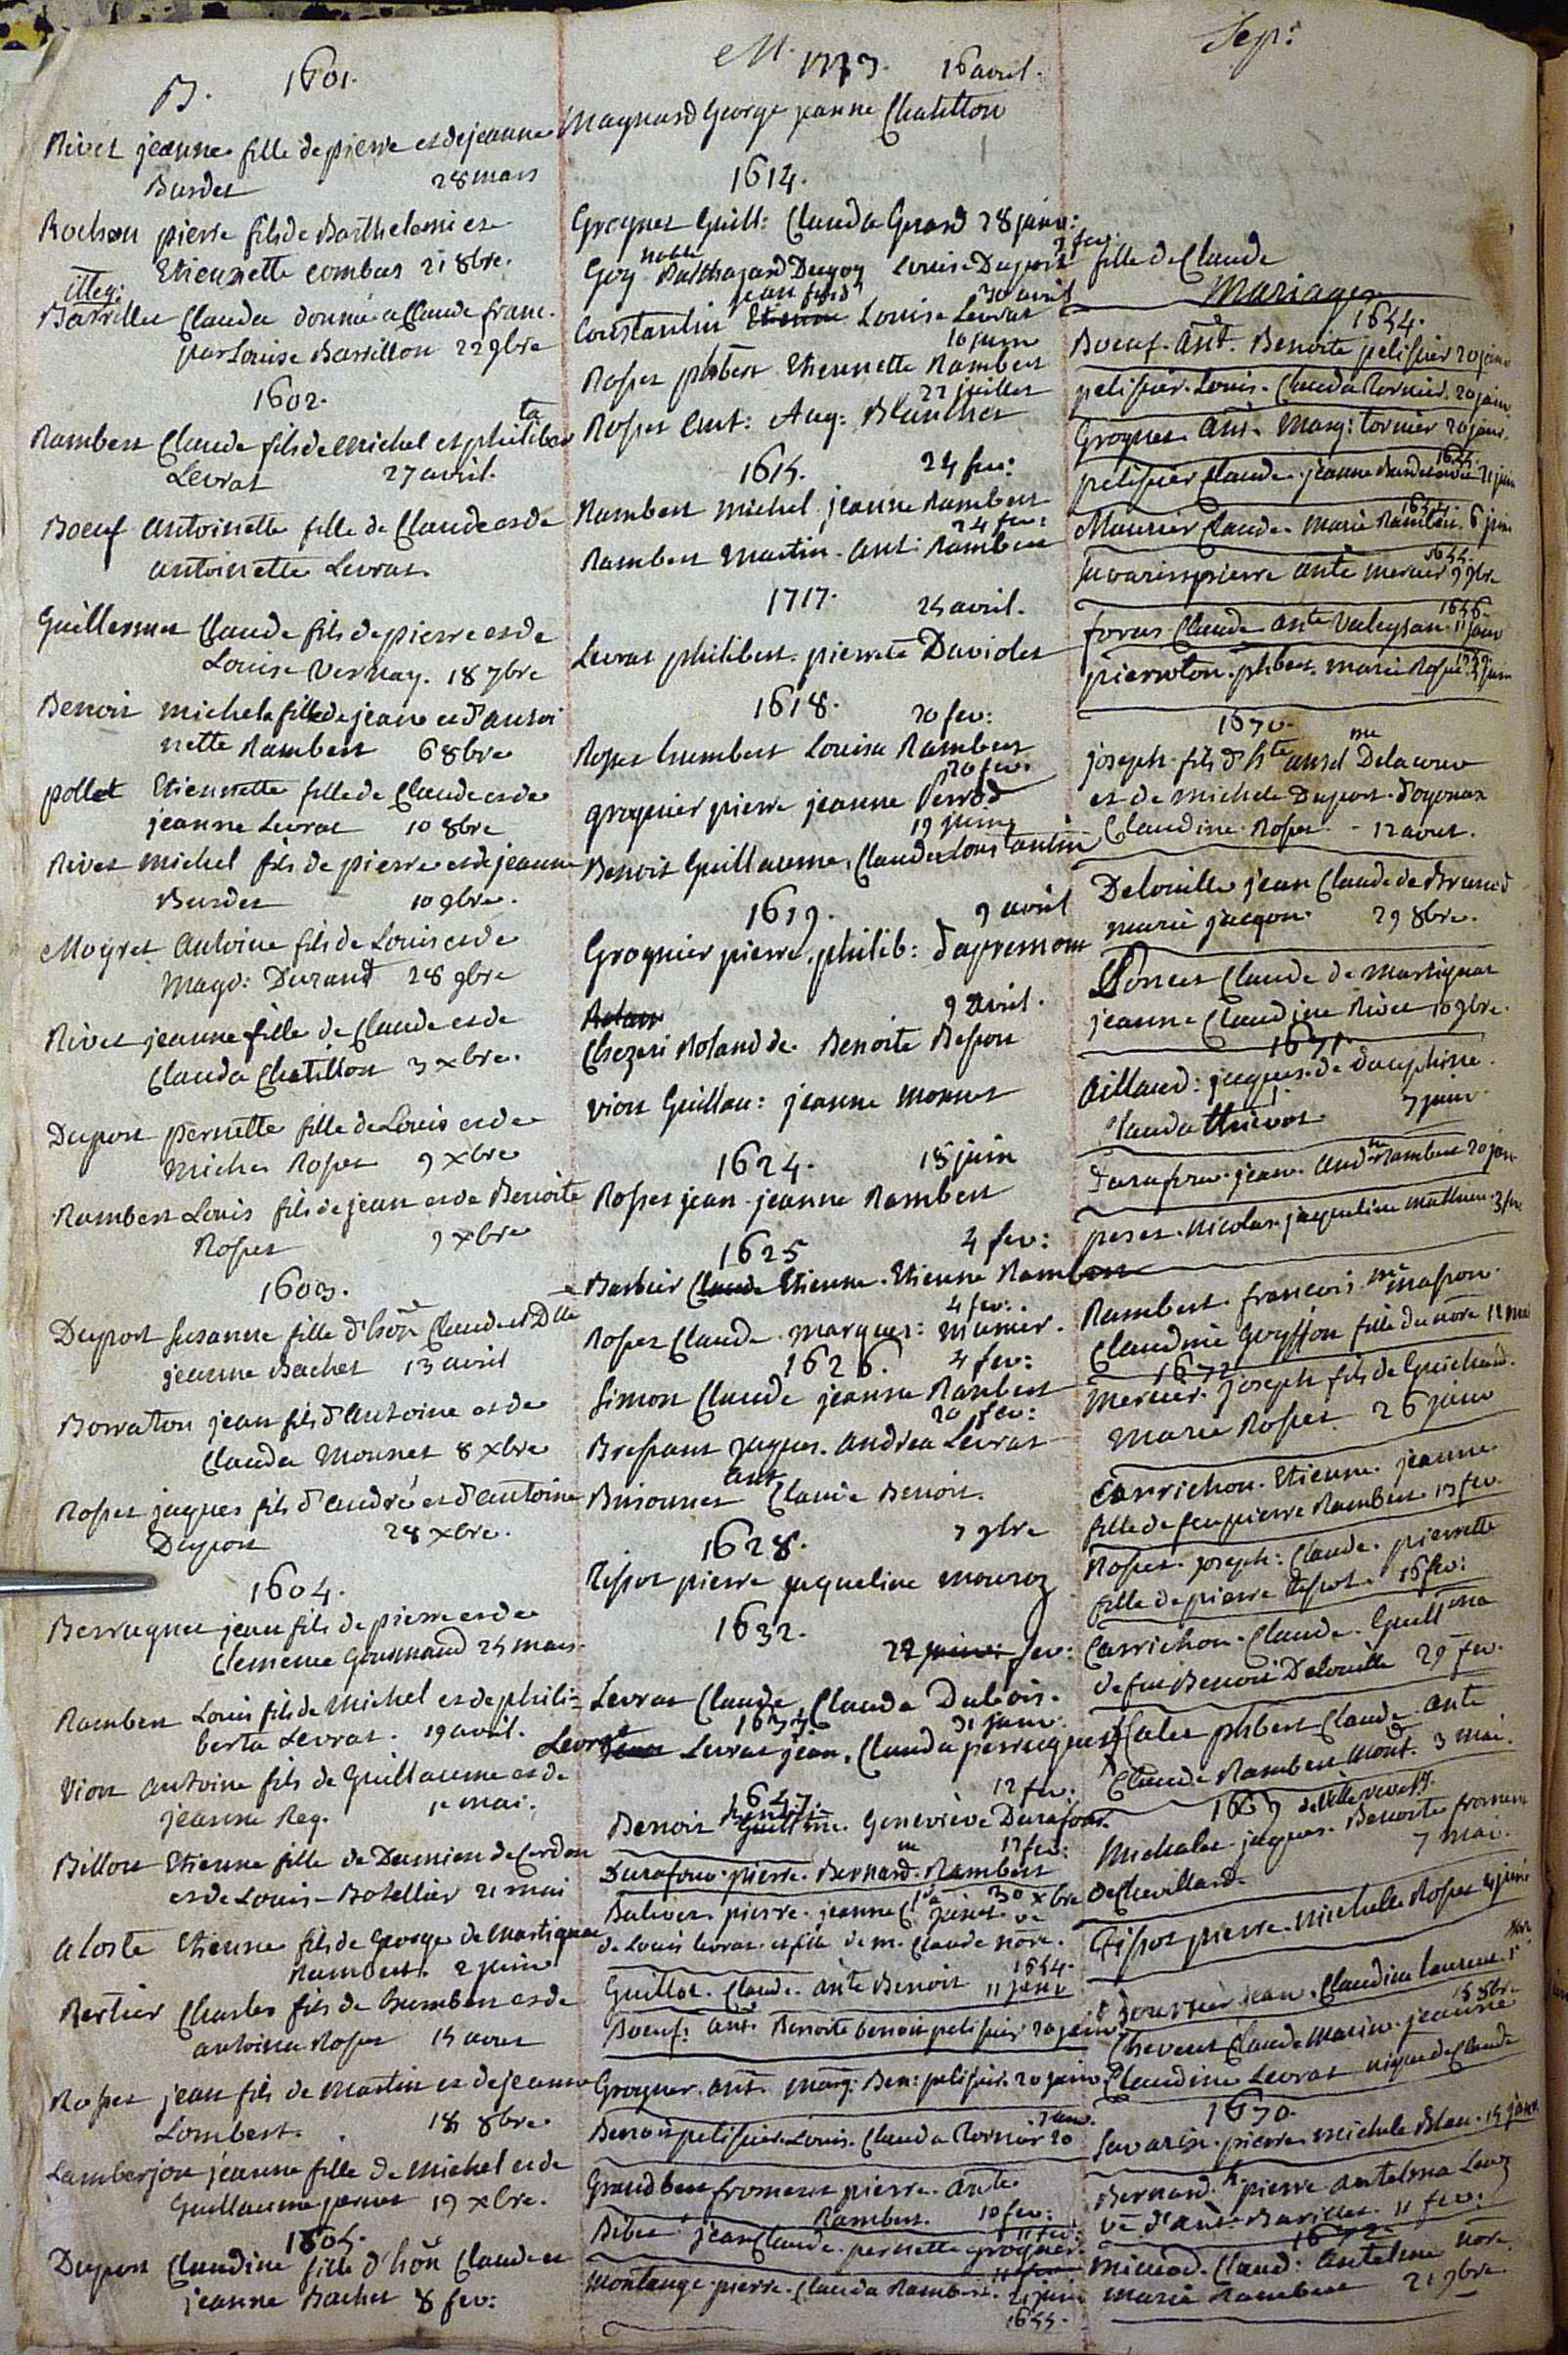 B. 1601.
Rivet jeanne fille de pierre et de jeanne
Burdet 28 mars
Rochon pierre fils de Barthelemi et
Etiennette combas 21 8bre.
illeg:
Barrillet Clauda donnée a Claude franc.
par Louise Barrillon 22 9bre
1602.
Rambert Claude fils de Michel et philiberta
Levrat 27 avril.
Boeuf antoinette fille de Claude et de
antoinette Levrat.
Guillermet Claude fils de pierre et de
Louise Vernay. 18 7bre
Benoit michele fille de jean et d'antoi
nette Rambert 6 8bre
pollet Etiennette fille de Claude et de
jeanne Levrat 10 8bre
Rivet michel fils de pierre et de jeanne
Burdet 10 9bre.
Moyret Antoine fils de Louis et de
Magd: Durand 28 9bre
Rivet jeanne fille de Claude et de
Clauda Chatillon 3 xbre.
Dupont pernette fille de Louis et de
Michel Rosset 9 xbre
Rambert Louis fils de jean et de Benoite
Rosset 9 xbre
1603.
Duport susanne fille d'hon Claude et Dlle
jeanne Bachet 13 avril
Borraton jean fils d'Antoine et de
Clauda Monnet 8 xbre
Rosset jaques fils d'andré et d'antoine
Duport 28 xbre.
1604.
Berruquet jean fils de pierre et de
Clemence Gourmand 25 mars
Rambert Louis fils de Michel et de phili-
berta Levrat. 19 avril.
Vion antoine fils de Guillaume et de
jeanne Rey. 1r mai.
Billon Etienne fille de Damien de Cerdon
et de Louis Botellier 21 mai
aloste Etienne fils de George de Martignat
Rambert. 2 juin
Bertier Charles fils de humbert et de
antoina Rosset 15 aout
Rosset jean fils de Martin et de jeanne
Lombert. 18 8bre
Lamberjon jeanne fille de Michel et de
Guillauma 19 xbre.
1605.
Duport Claudine fille d'hon Claude et
jeanne Bachet 8 fev:
M. 16 avril.
Maynard George jeanne Chatillon
1614.
Grognet Guill: Clauda Girard 28 janv:
noble 2 fev.
Goy Balthazard Dugoy Louise Duport fille de Claude
jean fils d' 30 avril
Constantin Etienne Louise Levrat
10 juin
Rosset phbert Etiennette Rambert
22 juillet
Rosset Ant: Aug: Blanchet
1615. 24 fev:
Rambert Michel jeanne Rambert
24 fev:
Rambert Martin. Ant: Rambert
1717. 25 avril.
Levrat philibert. pierrete Daviolet
1618. 20 fev:
Rosset humbert Louisa Rambert
20 fev:
grognier pierre jeanne Perrod
19 juin
Benoit Guillaume, Clauda Constantin
1619. 9 avril
Grognier pierre, philib: dapremont
9 avril.
Chezeri Roland de. Benoite Besson
vion Guillau: jeanne Monnet
1624. 15 juin
Rosset jean jeanne Rambert
1625 4 fev:
Barbier Claude Etienne. Etienne Rambert
4 fev:
Rosset Claude. margues: mumer.
1626. 4 fev:
Simon Claude jeanne Rambert
20 fev:
Bressant jaques. andrea Levrat
ant
Buisonnet Claude Benoit.
1628. 7 9bre
Tissot pierre jaqueline mouroz
1632.
22 janv: fev:
Levrat Claude, Clauda Dubois.
1633 31 janv:
Jean Levrat jean, Clauda perruquet
1647. 12 fev:
Benoit Guillme. Genevieve Durafour.
17 fev:
Durafour pierre. Bernarde. Rambert
Balivet. pierre. jeanne 30 xbre
de Louis levrat. et fille de m. Claude nore.
1654.
Guillot. Claude. ante Benoit 11 janv
Boeuf: ant. Benoite benoit pelissier 20 janv
Grognet. ant. marg: Ben: pelissier. 20 janv.
Benoit pelissier. Louis. Clauda Tornier 20 janv.
Grandbert froment pierre. ante
Rambert. 10 fev:
11 fev:
Bibet jean Claude. pernette grognet.
montange pierre. Clauda Rambert. 21 juin
1655.
Sep:
Mariages
1654.
Boeuf. Ant. Benoite pelissier 20 janv
pelissier. Louis. Clauda Tornier. 20 janv.
Grognet. Ant. Marg: tornier 20 janv.
pelissier Claude. jeanne 21 juin
Maurier Claude. Marie Rambert. 6 juin
savarin pierre ante mercier 9 9bre
1656.
forat Claude ante Valeysan. 11 janv
pierroton. phbert. marie Rosset. juin
1670.
joseph fils d'hte Ansel Delacour
et de michele Duport d'oyonax
Claudine Rosset. 12 aout.
Delouille jean Claude de Brenod
marie jacqon. 29 8bre.
Poncet Claude de Martignat
jeanne Claudine Rivet 10 9bre.
1671.
Aillaud: jaques. de dauphiné.
Clauda thievot 7 janv.
Durafour. jean. Andne Rambert 20 janv
peset. Nicolas jaqueline mathieu. 3 fev.
Rambert. francois me masson.
Claudine Goyffon fille du nore 12 mai
1672
Mercier. joseph fils de Guichard.
Marie Rosset. 26 janv
Carrichon. Etienne. jeanne
fille de feu pierre Rambert. 13 fev.
Rosset. joseph: Claude. pierrette
fille de pierre Tissot. 16 fev:
Carrichon. Claude. Guillma
de feu Benoit Delouille 29 fev.
Calet phbert Claude. ante
Claude Rambert Mond. 3 mai.
1669
Michalet. jaques. Benoite froment
de Chevillard. 7 mai.
Tissot pierre. Michelle Rosset 4 juin
Fournier jean. Claudine laurent. 1r
15 8bre
Chevent Claude Marin. jeanne
Claudine Levrat nique de Claude
1670.
Savarin. pierre michele Blanc. 15 janv
Bernard. pierre antelma Levrat
ve d'ant. Barillet. 11 fev:
1672.
Micod. Claud: Antelme nore.
Marie Rambert 21 9bre.